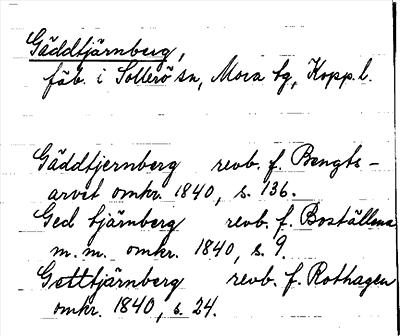 Gäddtjärnberg,
fäb. i Sollerö sn, Mora tg, Kopp. l.
Gäddtjernberg revb. f. Bengts-
arvet omkr. 1840, s. 136.
Ged tjärnberg revb. f. Boställena
m.m. omkr. 1840, s. 9.
Gettjärnberg revb. f. Rothagen
omkr. 1840, s. 24.